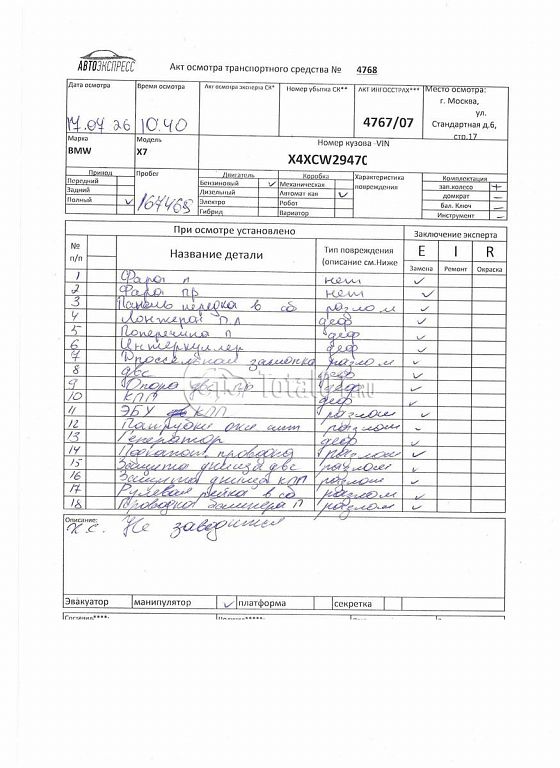 АВТОЭКСПРЕСС
Акт осмотра транспортного средства № 4768
Дата осмотра
17.07.26
Время осмотра
10.40
Акт осмотра эксперта СК*
Номер убытка СК**
АКТ ИНГОССТРАХ***
4767/07
Место осмотра:
г. Москва,
ул.
Стандартная д.6,
стр.17
Марка
BMW
Модель
X7
Номер кузова -VIN
X4XCW2947C
Привод
Передний
Задний
Полный ✓
Пробег
167465
Двигатель
Бензиновый ✓
Дизельный
Электро
Гибрид
Коробка
Механическая
Автомат кая ✓
Робот
Вариатор
Характеристика
повреждения
Комплектация
зап.колесо +
домкрат –
Бал. Ключ –
Инструмент –
При осмотре установлено
Заключение эксперта
№
п/п
Название детали
Тип повреждения
(описание см.Ниже
E I R
Замена Ремонт Окраска
1 Фара л нет ✓
2 Фара пр нет ✓
3 Панель передка в сб разлом ✓
4 Лонжерон П.Л деф ✓
5 Поперечина П деф ✓
6 Интеркуллер деф ✓
7 заслонка разлом ✓
8 двс деф ✓
9 Опора деф ✓
10 КПП деф ✓
11 ЭБУ КПП разлом ✓
12 Патрубки разлом ✓
13 Генератор деф ✓
14 проводка разлом ✓
15 Защита днища двс разлом ✓
16 Защита днища КПП разлом ✓
17 Рулевая рейка в сб разлом ✓
18 Проводка П разлом ✓
Описание:
х.с. Не заводится
Эвакуатор манипулятор ✓ платформа секретка
Total